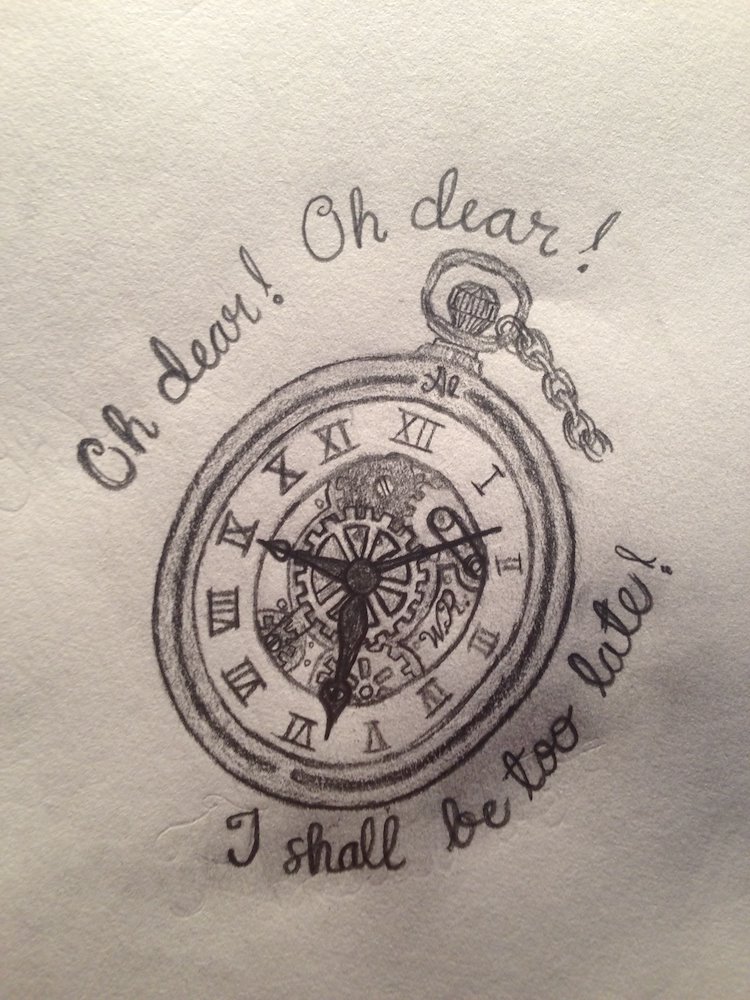 Oh dear! Oh dear!
XII
I
II
III
IV
V
VI
VII
VIII
IX
X
XI
W.R.
I shall be too late!